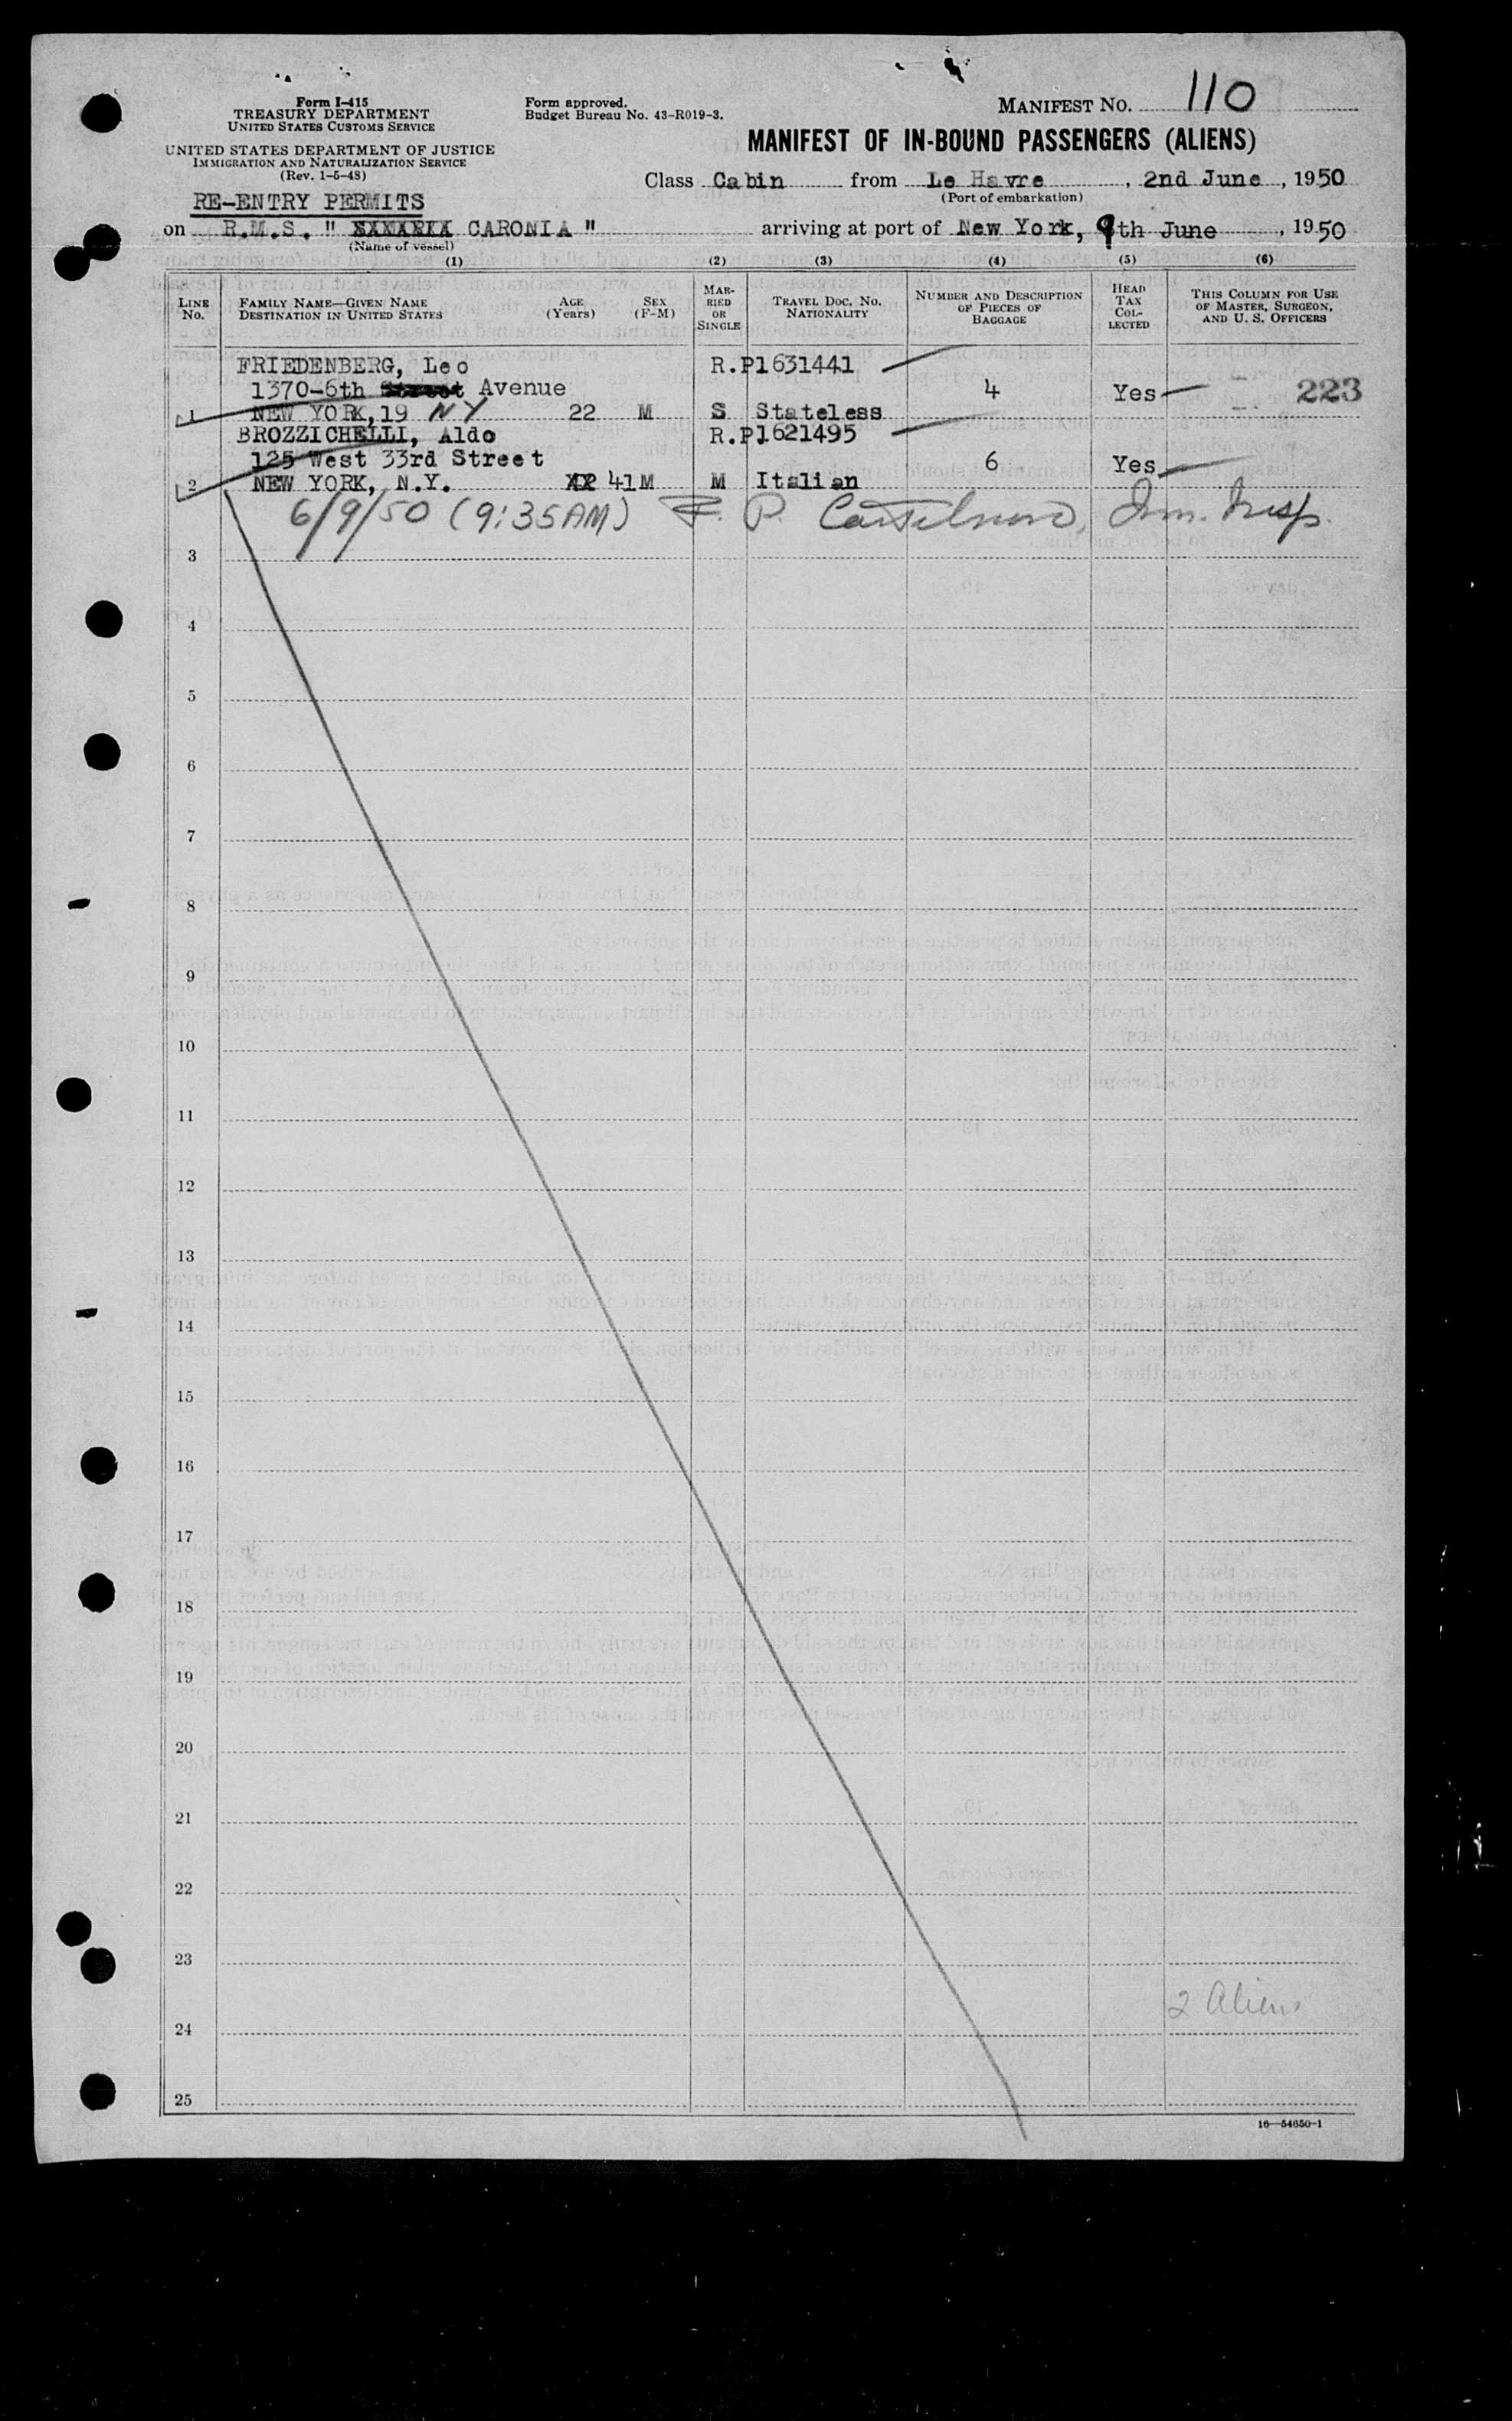 Form I-415
TREASURY DEPARTMENT
UNITED STATES CUSTOMS SERVICE
UNITED STATES DEPARTMENT OF JUSTICE
IMMIGRATION AND NATURALIZATION SERVICE
(Rev. 1-5-48)
Form approved.
Budget Bureau No. 43-R019-3.
MANIFEST NO. 110
MANIFEST OF IN-BOUND PASSENGERS (ALIENS)
Class Cabin from Le Havre, 2nd June, 1950
(Port of embarkation)
RE-ENTRY PERMITS
on R.M.S. " CARONIA " arriving at port of New York, 9th June, 1950
(Name of vessel)
(1) (2) (3) (4) (5) (6)
LINE No. FAMILY NAME—GIVEN NAME DESTINATION IN UNITED STATES AGE (Years) SEX (F-M) MARRIED OR SINGLE TRAVEL DOC. NO. NATIONALITY NUMBER AND DESCRIPTION OF PIECES OF BAGGAGE HEAD TAX COLLECTED THIS COLUMN FOR USE OF MASTER, SURGEON, AND U. S. OFFICERS
FRIEDENBERG, Leo R.P1631441
1370-6th Street Avenue 4 Yes 223
1 NEW YORK, 19 NY 22 M S Stateless
BROZZICHELLI, Aldo R.P1621495
125 West 33rd Street 6 Yes
2 NEW YORK, N.Y. 41 M M Italian
6/9/50 (9:35AM) F. P. Imm. Insp.
3
4
5
6
7
8
9
10
11
12
13
14
15
16
17
18
19
20
21
22
23
2 Aliens
24
25
16—54650-1